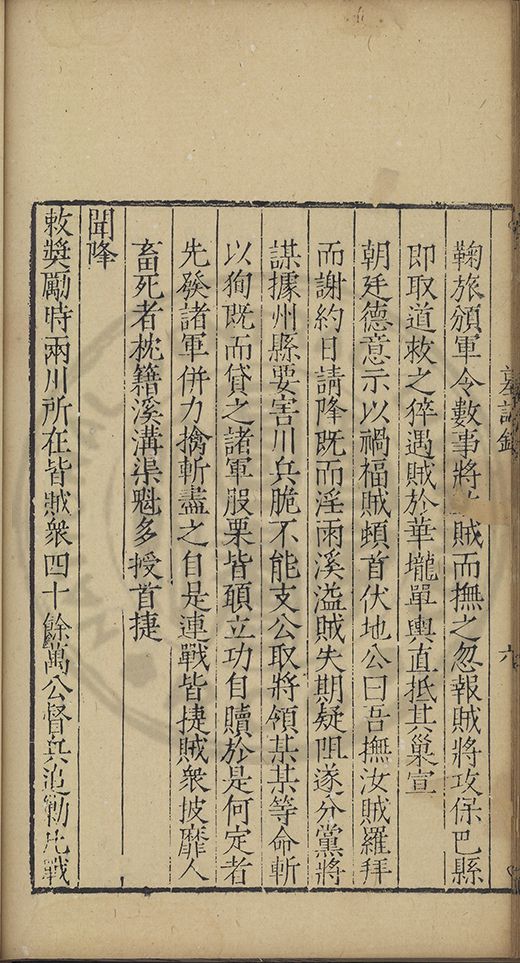 墓誌銘
六
鞠旅頒軍令數事將 賊而撫之忽報賊將攻保巴縣
即取道救之猝遇賊於華壠單輿直抵其巢宣
朝廷德意示以禍福賊頓首伏地公曰吾撫汝賊羅拜
而謝約日請降既而淫雨溪溢賊失期疑阻遂分黨將
謀據州縣要害川兵脆不能支公取將領某某等命斬
以狥既而貸之諸軍股栗皆頭立功自贖於是何定者
先發諸軍併力擒斬盡之自是連戰皆捷賊衆披靡人
畜死者枕籍溪溝渠魁多授首捷
聞降
敕獎勵時兩川所在皆賊衆四十餘萬公督兵追勦凡戰